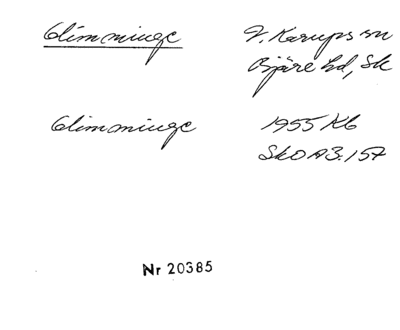 Glimminge V. Karups sn
Bjäre hd, Sk
Glimminge 1955 Kb
Sk0 A3.157
Nr 20385